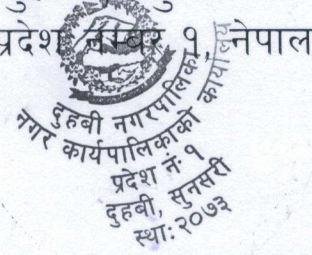 प्रदेश नम्बर १, नेपाल
दुहबी नगरपालिका
नगर कार्यपालिकाको कार्यालय
प्रदेश नं. १
दुहबी, सुनसरी
स्था: २०७३